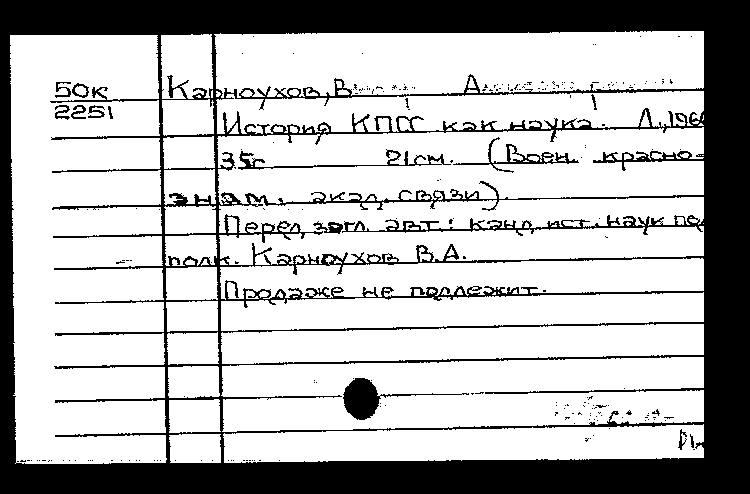 50к
2251
Карноухов, В А
История КПСС как наука. Л., 196
35с 21см. (Воен. красно-
знам. акад. связи).
Перед загл. авт.: канд. ист. наук по
полк. Карноухов В.А.
Продаже не подлежит.